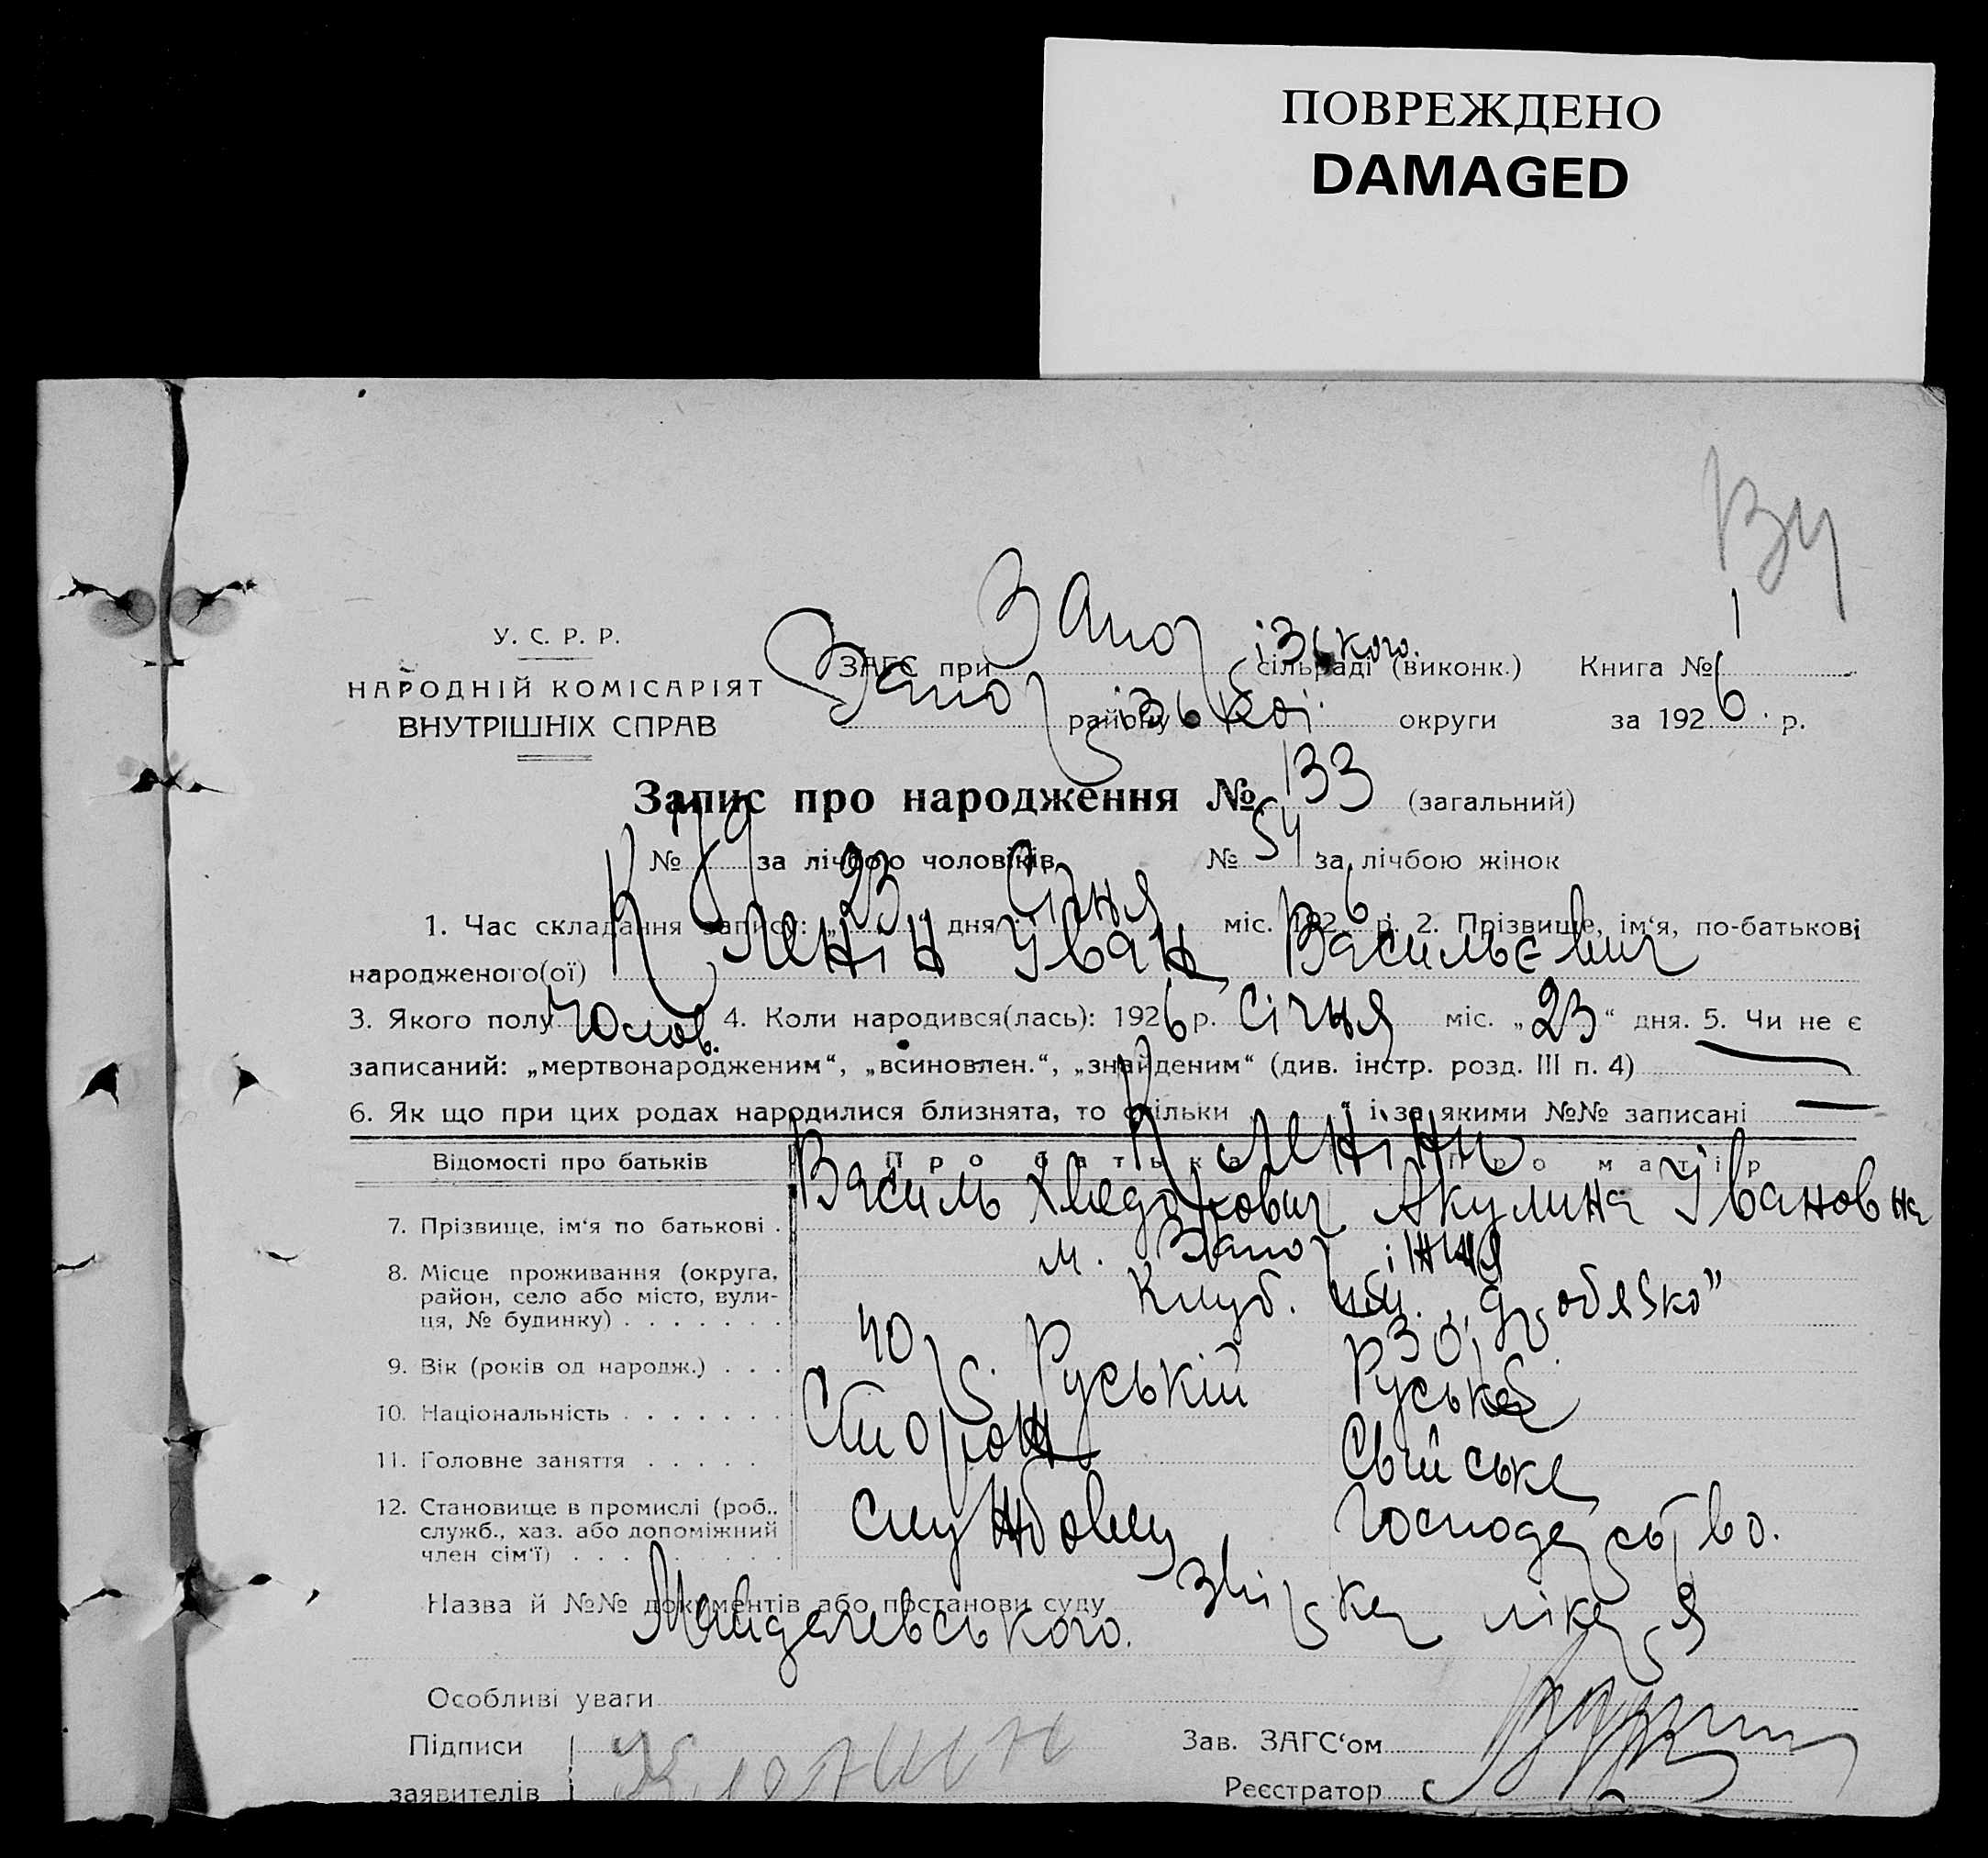 ПОВРЕЖДЕНО
DAMAGED
Ву
У. С. Р. Р.
НАРОДНІЙ КОМІСАРІЯТ
ВНУТРІШНІХ СПРАВ
ЗАГС при Запорізького сільраді (виконк.) Книга № 1
Запорізької району округи за 1926 р.
Запис про народження № 133 (загальний)
№ 79 за лічбою чоловіків № 54 за лічбою жінок
1. Час складання запису: „23“ дня Січня міс. 1926 р. 2. Прізвище, ім'я, по-батькові
народженого(ої) Кленін Іван Васильєвич
3. Якого полу Чолов. 4. Коли народився(лась): 1926 р. Січня міс. „23“ дня. 5. Чи не є
записаний: „мертвонародженим“, „всиновлен.“, „знайденим“ (див. інстр. розд. III п. 4) —
6. Як що при цих родах народилися близнята, то скільки „ “ і за якими №№ записані —
Відомості про батьків Про батька Про матір
Кленіни
7. Прізвище, ім'я по батькові . Василь Хведорович Акулина Івановна
8. Місце проживання (округа, район, село або місто, вулиця, № будинку) . . . . . . . м. Запоріжжя
Клуб. ім. „Дробязко”
9. Вік (років од народж.) . . . 40 р. 30
10. Національність . . . . . . . Руській Руська
11. Головне заняття . . . . . Сторож Свійське
12. Становище в промислі (роб., служб., хаз. або допоміжний член сім'ї) . . . . . . . . . службовец господарство.
Назва й №№ документів або постанови суду звірка лікаря
Особливі уваги
Підписи Кленин Зав. ЗАГС'ом
заявителів Реєстратор